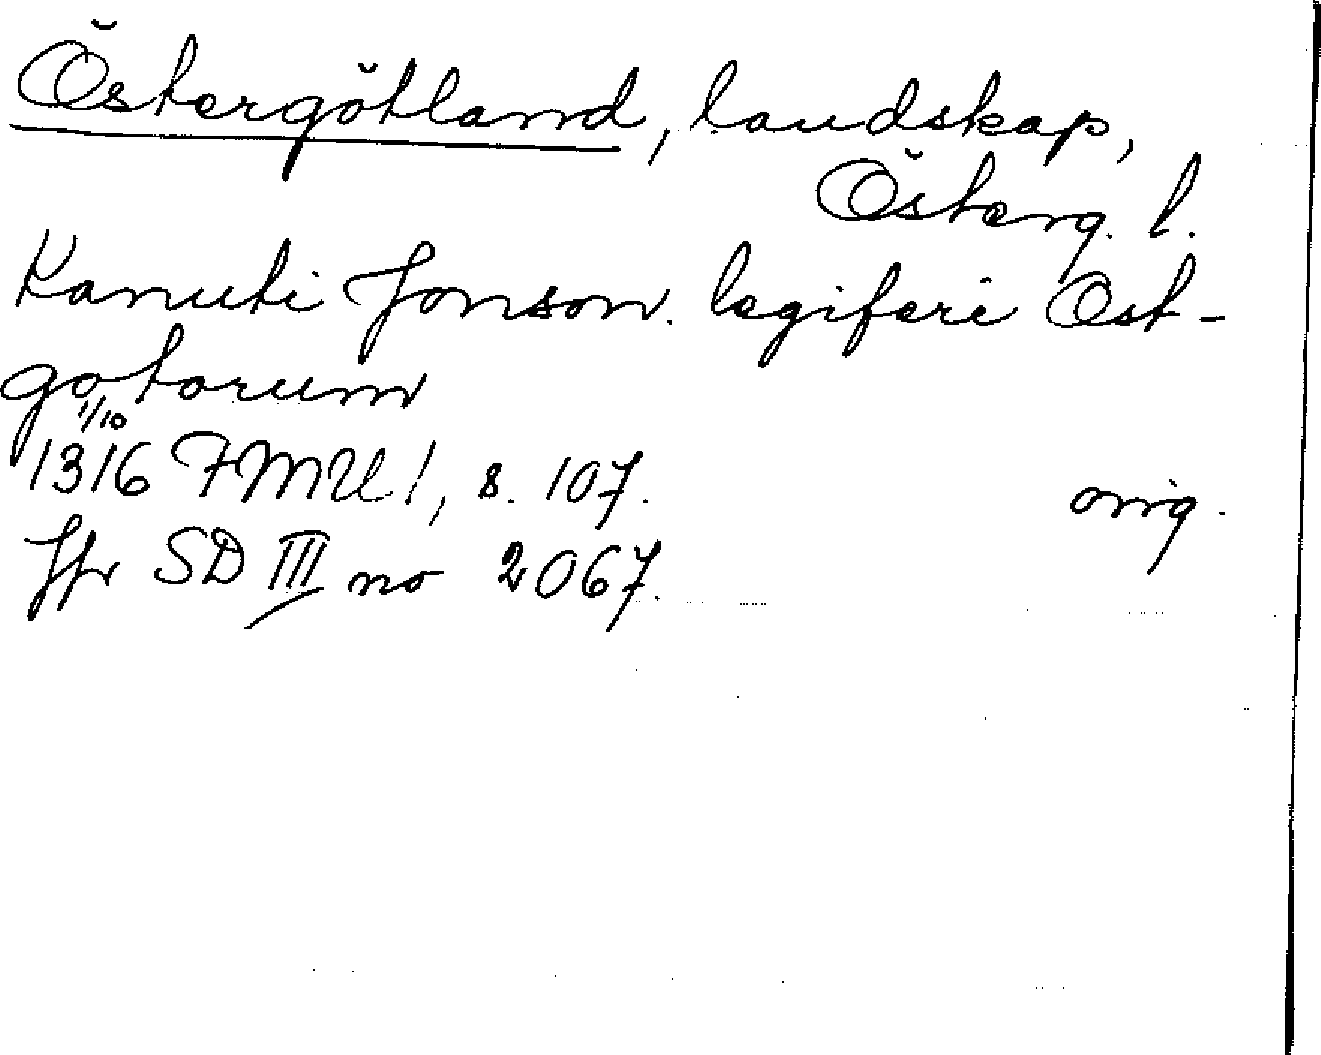 Östergötland, landskap,
Österg. l.
Kanuti Jonson. legiferi Ost-
gotorum
1/10
1316 FMU I, s. 107. orig.
Jfr SD III no 2067.